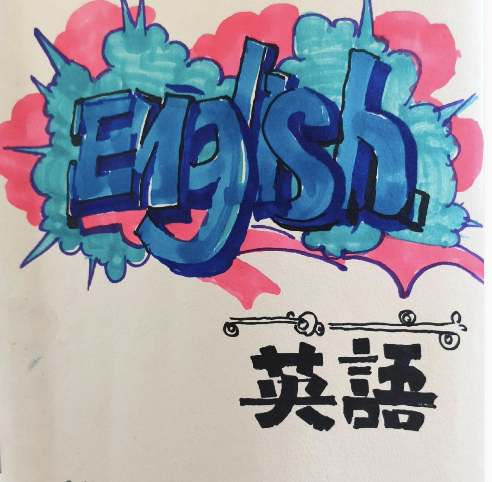 English.
英語